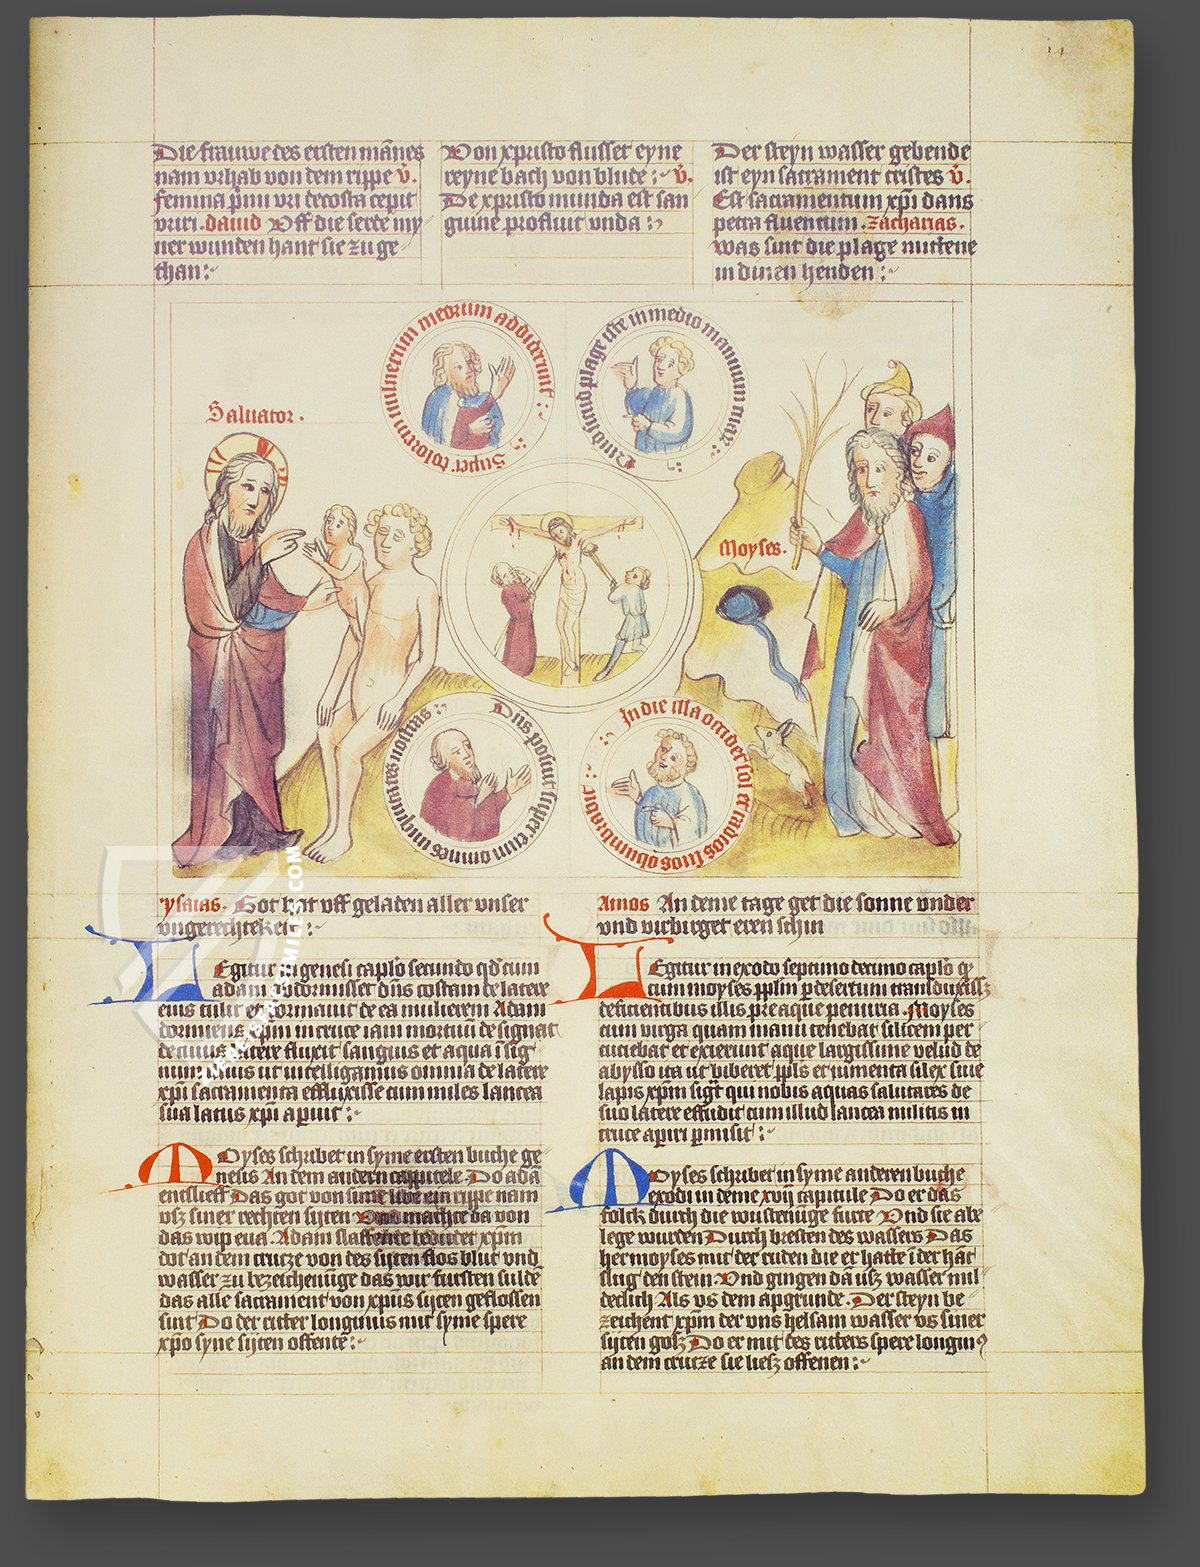 Die frauwe des ersten mãnes
nam vrhab von dem rippe v̾.
femina p̃mi viri de costa cepit
viri. dauid Vff die serde my
ner wunden hant sie zu ge
than :~
Von xpristo flusset eyne
reyne bach von blude :~ v̾.
De xpristo munda est san
guine profluit vnda :~
Der steyn wasser gebende
ist eyn sacrament cristes v̾.
Est sacramentum xp̃i dans
petra fluentum. zacharias.
was sint die plage mittene
in dinen henden :~
Super dolorem wlnerum meorum addiderunt :~
Quid sunt plage iste in medio manuum tuar̃ :~
Saluator.
Moyses.
Dñs posuit super eum omnes iniquitates nostras :~
In die illa occidet sol et radios suos obumbrabit :~
ysaias. Got hat vff geladen aller vnser
vngerechtekeit :~
Amos An deme tage get die sonne vnder
vnd virbirget eren schin
LEgitur in genesi caplõ secundo qđ cum
adam obdormisset dñs costam de latere
eius tulit et formauit de ea mulierem Adam
dormiens xp̃m in cruce iam mortuũ de signat
de cuius latere fluxit sanguis et aqua ĩ sig
num illius ut intelligamus omnia de latere
xp̃i sacramenta effluxisse cum miles lancea
sua latus xp̃i apuit :~
MOyses schribet in syme ersten buche ge
nesis An dem andern cappitele. Do ada
entslieff Das got von sime libe ein rippe nam
vsz siner rechten syten Vnd machte da von
das wip eua. Adam slaffende bedudet xp̃m
dot an dem cruze von des syten flos blut vnd
wasser zu bezeichenũge das wir fursten sulde
das alle sacrament von xpũs syten geflossen
sint Do der ritter longinus mit syme spere
xp̃o syne syten offente :~
LEgitur in exodo septimo decimo caplõ q̃
cum moyses pplm̃ p desertum transduxiss;
deficientibus illis pre aque penuria. Moyses
cum virga quam manu tenebat silicem per
cuciebat et exierunt aque largissime velud de
abysso ita ut biberet ppl̃s et iumenta silex siue
lapis xp̃m sigt̃ qui nobis aquas salutares de
suo latere effudit cum illud lancea militis in
cruce apiri pmisit :~
MOyses schribet in syme anderen buche
exodi in deme xvij capitule Do er das
folck durch die wustenũge furte Vnd sie abe
lege wurden Durch bresten des wassers Das
her moyses mit der ruden die er hatte ĩ der hãt
slug den stein. Vnd gingen dã usz wasser mil
declich Als vs dem apgrunde. Der steyn be
zeichent xp̃m der vns heilsam wasser vs siner
syten gosz Do er mit des ritters spere longin9
an dem cruze sie liesz offenen :~
FACSIMILES.COM